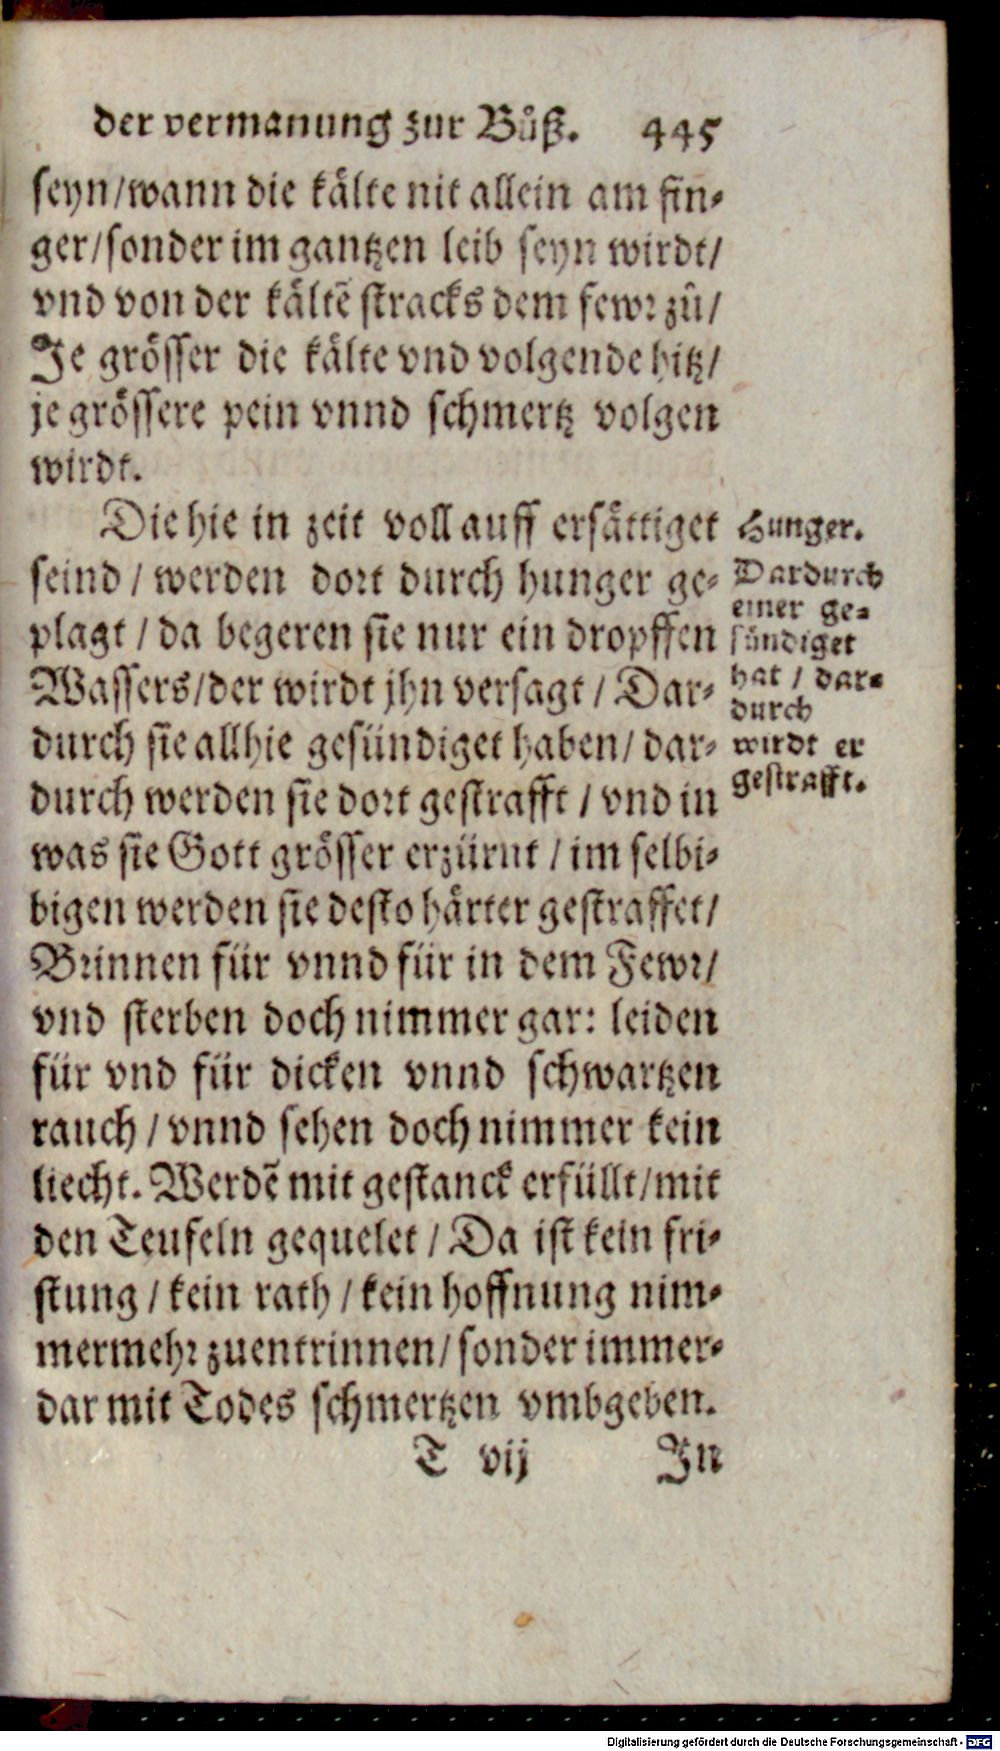 der vermanung zur Bůß. 445
seyn/wann die kälte nit allein am fin⸗
ger/sonder im gantzen leib seyn wirdt/
vnd von der kältē stracks dem fewr zů/
Je grösser die kälte vnd volgende hitz/
je grössere pein vnnd schmertz volgen
wirdt.
Die hie in zeit voll auff ersättiget
seind / werden dort durch hunger ge⸗
plagt / da begeren sie nur ein dropffen
Wassers/der wirdt jhn versagt / Dar⸗
durch sie allhie gesündiget haben/ dar⸗
durch werden sie dort gestrafft / vnd in
was sie Gott grösser erzürnt / im selbi⸗
bigen werden sie desto härter gestraffet/
Brinnen für vnnd für in dem Fewr/
vnd sterben doch nimmer gar: leiden
für vnd für dicken vnnd schwartzen
rauch / vnnd sehen doch nimmer kein
liecht. Werdē mit gestanck erfüllt/mit
den Teufeln gequelet / Da ist kein fri⸗
stung / kein rath / kein hoffnung nim⸗
mermehr zuentrinnen/ sonder immer⸗
dar mit Todes schmertzen vmbgeben.
T vij In
Hunger.
Dardurch
einer ge⸗
sündiget
hat / dar⸗
durch
wirdt er
gestrafft.
Digitalisierung gefördert durch die Deutsche Forschungsgemeinschaft - DFG